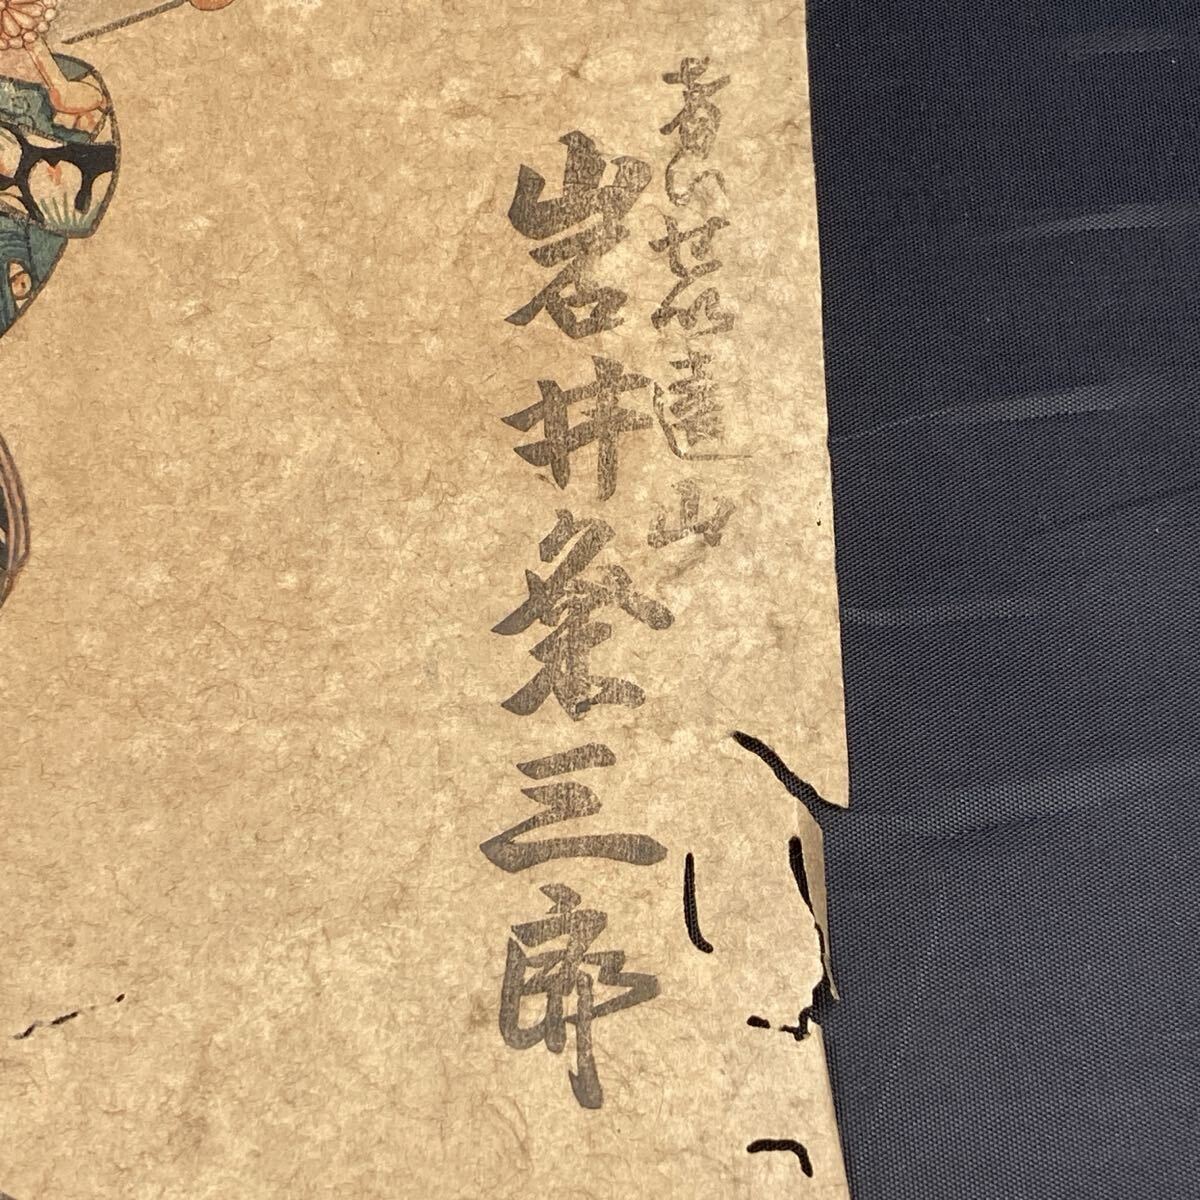 けいせい遠山
岩井粂三郎